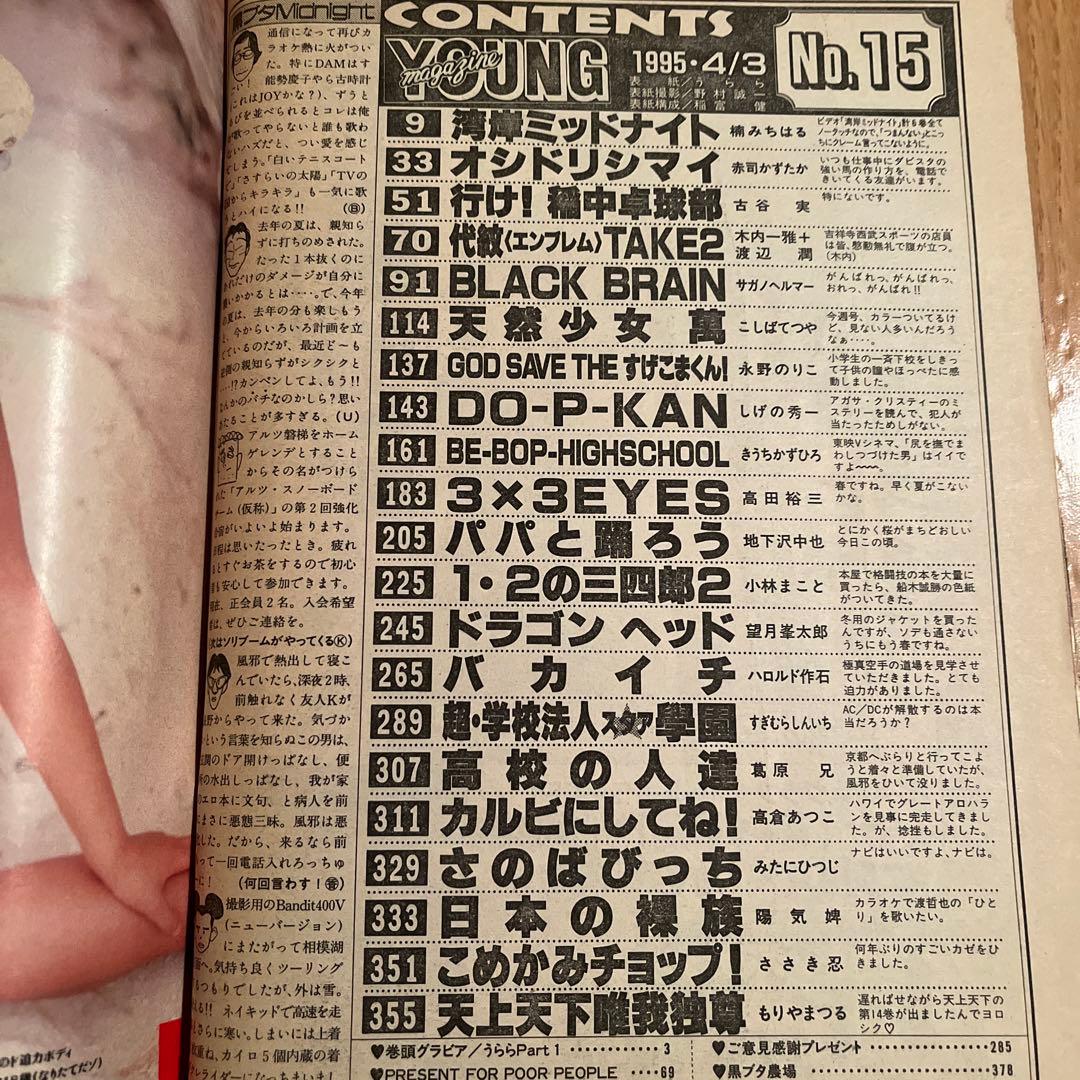 黒ブタMidnight
通信になって再びカ
ラオケ熱に火がつい
た。特にDAMはす
能勢慶子やら古時計
(これはJOYかな?)、ずうと
びを並べられるとコレは俺
が歌ってやらないと誰も歌わ
ないハズだと、つい愛を感じ
てしまう。「白いテニスコート
で」「さすらいの太陽」「TVの
国からキラキラ」も一気に歌
とハイになる!! (B)
去年の夏は、親知ら
ずに打ちのめされた。
たった1本抜くのに
れだけのダメージが自分に
いかかるとは‥‥。で、今年
夏は、去年の分も楽しもう
、今からいろいろ計画を立
ているのだが、最近ど〜も
側の親知らずがシクシクと
‥!?カンベンしてよ、もう!!
なんかのバチなのかしら?思い
たることが多すぎる。(U)
アルツ磐梯をホーム
ゲレンデとすること
からその名がつけら
れた「アルツ・スノーボード
チーム(仮称)」の第2回強化
合宿がいよいよ始まります。
程は思いたったとき。疲れ
るとすぐお茶をするので初心
も安心して参加できます。
在、正会員2名。入会希望
は、ぜひご連絡を。
(次はソリブームがやってくるK)
風邪で熱出して寝こ
んでいたら、深夜2時、
前触れなく友人Kが
野からやって来た。気づか
という言葉を知らぬこの男は、
関のドア開けっぱなし、便
所の水出しっぱなし、我が家
のエロ本に文句、と病人を前
にまさに悪態三昧。風邪は悪
した。だから、来るなら前
って一回電話入れろっちゅ
に! (何回言わす!音)
撮影用のBandit400V
(ニューバージョン)
にまたがって相模湖
へ。気持ち良くツーリング
つもりでしたが、外は雪。
!! ネイキッドで高速を走
さらに寒い。しまいには上着
重ね、カイロ5個内蔵の着
レライダーになっちまいまし
CONTENTS
YOUNG magazine
1995・4/3
No.15
表紙/うらら
表紙撮影/野村誠一
表紙構成/稲富健
9 湾岸ミッドナイト 楠みちはる ビデオ「湾岸ミッドナイト」計5巻全て
ノータッチなので、「つまんない」とこっ
ちにクレーム言ってこないように。
33 オシドリシマイ 赤司かずたか いつも仕事中にダビスタの
強い馬の作り方を、電話で
きいてくる友達がいます。
51 行け!稲中卓球部 古谷実 特にないです。
70 代紋〈エンブレム〉TAKE2 木内一雅+渡辺潤 吉祥寺西武スポーツの店員
は皆、慇懃無礼で腹が立つ。
(木内)
91 BLACK BRAIN サガノヘルマー がんばれっ、がんばれっ、
おれっ、がんばれ!!
114 天然少女萬 こしばてつや 今週号、カラーついてるけ
ど、見ない人多いんだろう
なぁ‥‥。
137 GOD SAVE THE すげこまくん! 永野のりこ 小学生の一斉下校をしきっ
て子供の瞳やほっぺたに感
動しました。
143 DO-P-KAN しげの秀一 アガサ・クリスティーのミ
ステリーを読んで、犯人が
当たったためしがない。
161 BE-BOP-HIGHSCHOOL きうちかずひろ 東映Vシネマ、「尻を撫でま
わしつづけた男」はイイで
すよ〜〜。
183 3×3EYES 高田裕三 春ですね。早く夏がこない
かな。
205 パパと踊ろう 地下沢中也 とにかく桜がまちどおしい
今日この頃。
225 1・2の三四郎2 小林まこと 本屋で格闘技の本を大量に
買ったら、船木誠勝の色紙
がついてきた。
245 ドラゴンヘッド 望月峯太郎 冬用のジャケットを買った
んですが、ソデも通さない
うちにもう春ですね。
265 バカイチ ハロルド作石 極真空手の道場を見学させ
ていただきました。とても
迫力がありました。
289 超・学校法人スタア學園 すぎむらしんいち AC/DCが解散するのは本
当だろうか?
307 高校の人達 葛原兄 京都へぶらりと行ってこよ
うと着々と準備していたが、
風邪をひいて没りました。
311 カルビにしてね! 高倉あつこ ハワイでグレートアロハラ
ンを見事に完走してきまし
た。が、捻挫もしました。
329 さのばびっち みたにひつじ ナビはいいですよ、ナビは。
333 日本の裸族 陽気婢 カラオケで渡哲也の「ひと
り」を歌いたい。
351 こめかみチョップ! ささき忍 何年ぶりのすごいカゼをひ
きました。
355 天上天下唯我独尊 もりやまつる 遅ればせながら天上天下の
第14巻が出ましたんでヨロ
シク♡
♥巻頭グラビア/うららPart 1 3
♥ご意見感謝プレゼント 285
♥PRESENT FOR POOR PEOPLE 69
♥黒ブタ農場 378
のド迫力ボディ